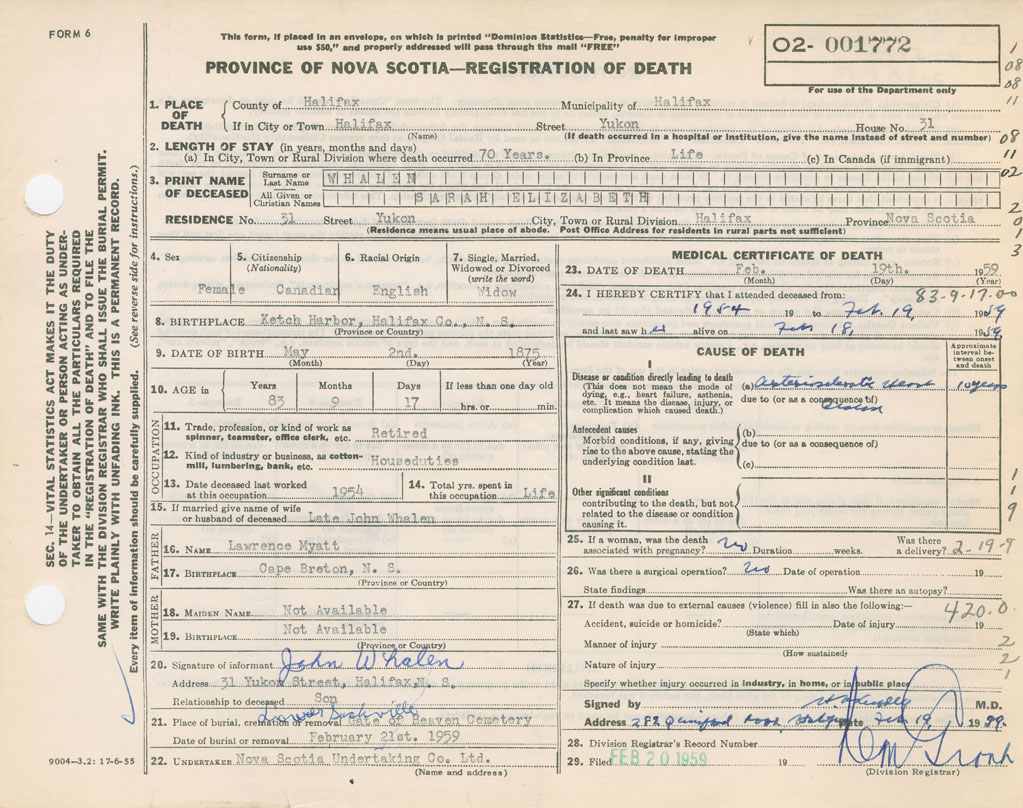 FORM 6
This form, if placed in an envelope, on which is printed "Dominion Statistics—Free, penalty for improper
use $50," and properly addressed will pass through the mail "FREE"
PROVINCE OF NOVA SCOTIA—REGISTRATION OF DEATH
02- 001772
For use of the Department only
1
08
08
11
08
11
02
2
0
1
3
SEC. 14—VITAL STATISTICS ACT MAKES IT THE DUTY
OF THE UNDERTAKER OR PERSON ACTING AS UNDER-
TAKER TO OBTAIN ALL THE PARTICULARS REQUIRED
IN THE "REGISTRATION OF DEATH" AND TO FILE THE
SAME WITH THE DIVISION REGISTRAR WHO SHALL ISSUE THE BURIAL PERMIT.
WRITE PLAINLY WITH UNFADING INK. THIS IS A PERMANENT RECORD.
Every item of information should be carefully supplied. (See reverse side for instructions.)
1. PLACE OF DEATH
County of Halifax Municipality of Halifax
If in City or Town Halifax Street Yukon House No. 31
(Name) (If death occurred in a hospital or institution, give the name instead of street and number)
2. LENGTH OF STAY (in years, months and days)
(a) In City, Town or Rural Division where death occurred 70 Years. (b) In Province Life (c) In Canada (if immigrant)
3. PRINT NAME OF DECEASED
Surname or Last Name WHALEN
All Given or Christian Names SARAH ELIZABETH
RESIDENCE No. 31 Street Yukon City, Town or Rural Division Halifax Province Nova Scotia
(Residence means usual place of abode. Post Office Address for residents in rural parts not sufficient)
4. Sex
Female
5. Citizenship (Nationality)
Canadian
6. Racial Origin
English
7. Single, Married, Widowed or Divorced (write the word)
Widow
8. BIRTHPLACE Ketch Harbor, Halifax Co., N. S.
(Province or Country)
9. DATE OF BIRTH May 2nd. 1875
(Month) (Day) (Year)
10. AGE in Years Months Days If less than one day old
83 9 17 hrs. or min.
OCCUPATION
11. Trade, profession, or kind of work as spinner, teamster, office clerk, etc. Retired
12. Kind of industry or business, as cotton-mill, lumbering, bank, etc. Houseduties
13. Date deceased last worked at this occupation 1954
14. Total yrs. spent in this occupation Life
15. If married give name of wife or husband of deceased Late John Whalen
FATHER
16. NAME Lawrence Myatt
17. BIRTHPLACE Cape Breton, N. S.
(Province or Country)
MOTHER
18. MAIDEN NAME Not Available
19. BIRTHPLACE Not Available
(Province or Country)
20. Signature of informant John Whalen
Address 31 Yukon Street, Halifax, N. S.
Relationship to deceased Son
Lower Sackville
21. Place of burial, cremation or removal Gate of Heaven Cemetery
Date of burial or removal February 21st. 1959
22. UNDERTAKER Nova Scotia Undertaking Co. Ltd.
(Name and address)
9004—3.2: 17-6-55
MEDICAL CERTIFICATE OF DEATH
23. DATE OF DEATH Feb. 19th. 1959
(Month) (Day) (Year)
83-9-17.00
24. I HEREBY CERTIFY that I attended deceased from:
1954 19 to Feb. 19, 1959
and last saw her alive on Feb 18, 1959.
CAUSE OF DEATH
Approximate interval between onset and death
I
Disease or condition directly leading to death
(This does not mean the mode of dying, e.g., heart failure, asthenia, etc. It means the disease, injury, or complication which caused death.)
(a) Arteriosclerotic Heart 10 years
due to (or as a consequence of)
Disease
Antecedent causes
Morbid conditions, if any, giving rise to the above cause, stating the underlying condition last.
(b)
due to (or as a consequence of)
(c)
II
Other significant conditions
contributing to the death, but not related to the disease or condition causing it.
1
1
9
25. If a woman, was the death associated with pregnancy? no Duration weeks. Was there a delivery? 2-19-9
26. Was there a surgical operation? no Date of operation 19
State findings Was there an autopsy?
27. If death was due to external causes (violence) fill in also the following:— 420.0
Accident, suicide or homicide? Date of injury 19
(State which)
Manner of injury 2
(How sustained)
Nature of injury 2
Specify whether injury occurred in industry, in home, or in public place 1
Signed by M.D.
Address 282 Road, Date Feb 19, 1959.
28. Division Registrar's Record Number
29. Filed FEB 20 1959
(Division Registrar)